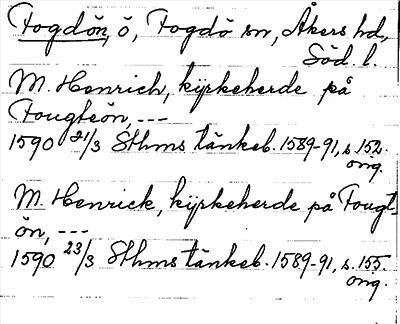 Fogdön, ö, Fogdö sn, Åkers hd,
Söd. l.
M. Henrich, kyrkeherde på
Fougteön, ---
1590 21/3 Sthms tänkeb. 1589-91, s. 152.
orig.
M. Henrick, kyrkeherde på Fougt-
ön, ---
1590 23/3 Sthms tänkeb. 1589-91, s. 155.
orig.